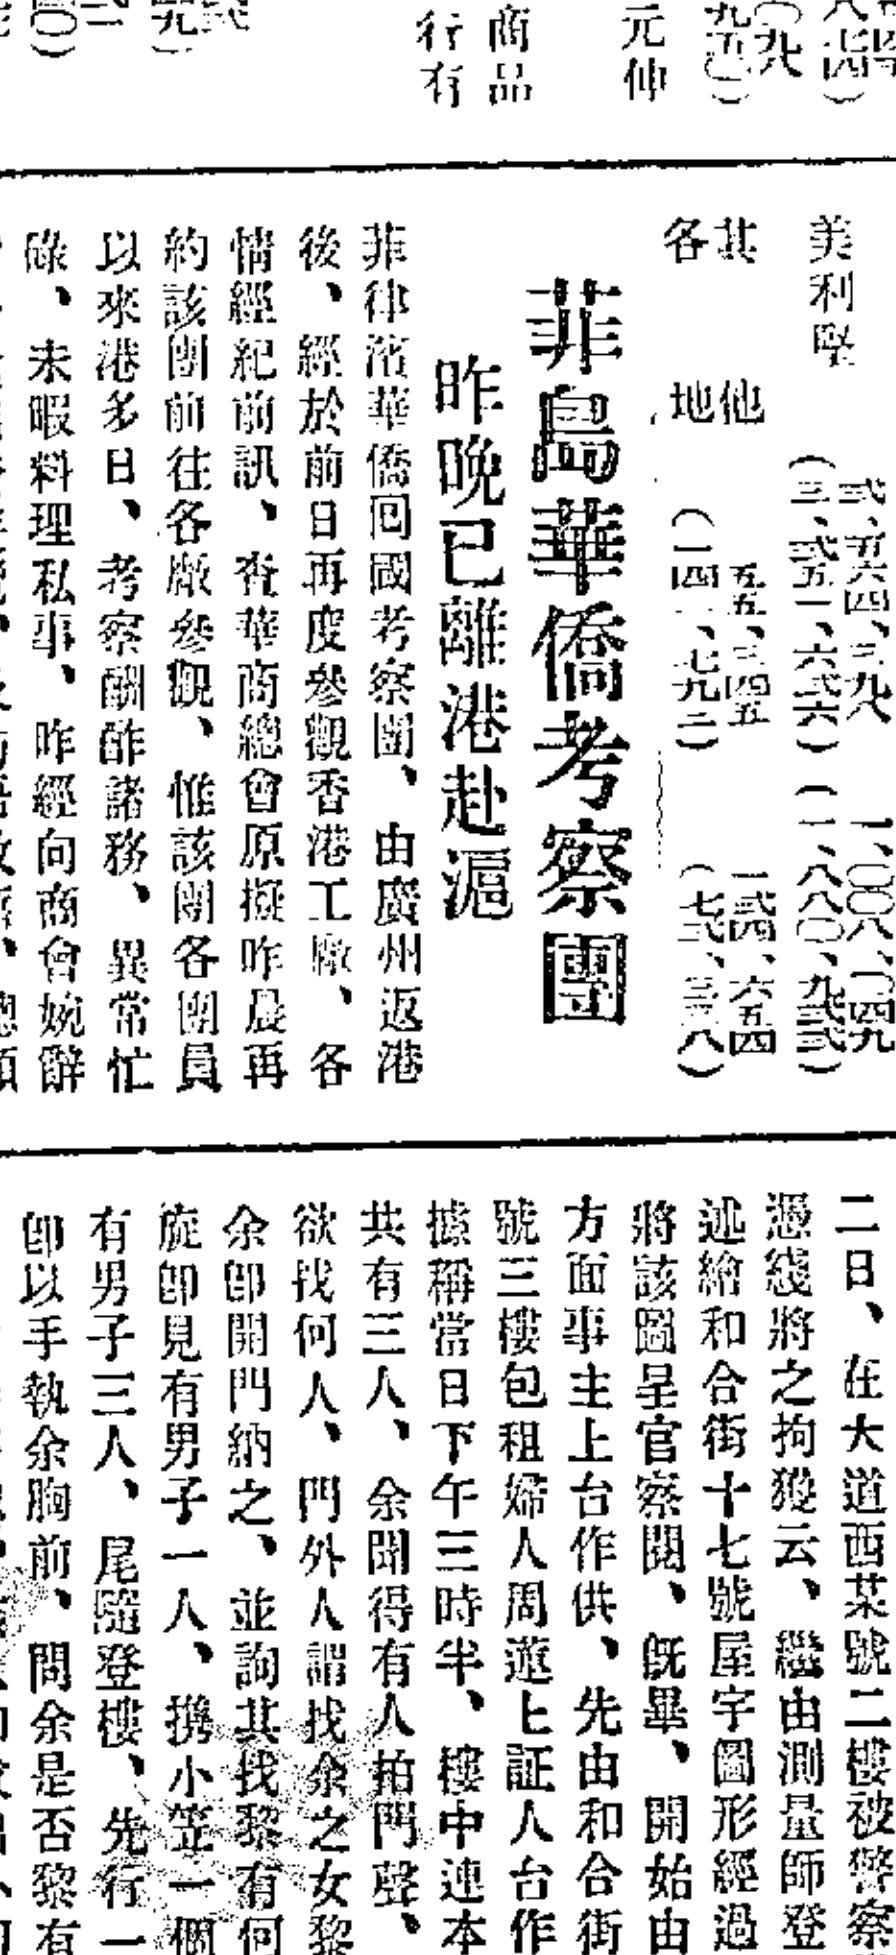 商品
行有
元伸
美利堅
弍、五六四、三九八
一、〇〇八、一四九
(三、弍五一、六弍六)
(一、八八〇、九弍弍)
其他
各地
五五、三四五
一弍四、六五四
(一四一、七九二)
菲島華僑考察團
昨晚已離港赴滬
菲律濱華僑回國考察團、由廣州返港
後、經於前日再度參觀香港工廠、各
情經紀前訊、查華商總會原擬昨晨再
約該團前往各廠參觀、惟該團各團員
以來港多日、考察酬酢諸務、異常忙
碌、未暇料理私事、昨經向商會婉辭
二日、在大道西某號二樓被警察
憑綫將之拘獲云、繼由測量師登
述繪和合街十七號屋宇圖形經過
將該圖呈官察閱、旣畢、開始由
方面事主上台作供、先由和合街
號三樓包租婦人周蓮上証人台作
據稱當日下午三時半、樓中連本
共有三人、余聞得有人拍門聲、
欲找何人、門外人謂找余之女黎
余卽開門納之、並詢其找黎有何
旋卽見有男子一人、携小笠一個
有男子三人、尾隨登樓、先行一
卽以手執余胸前、問余是否黎有